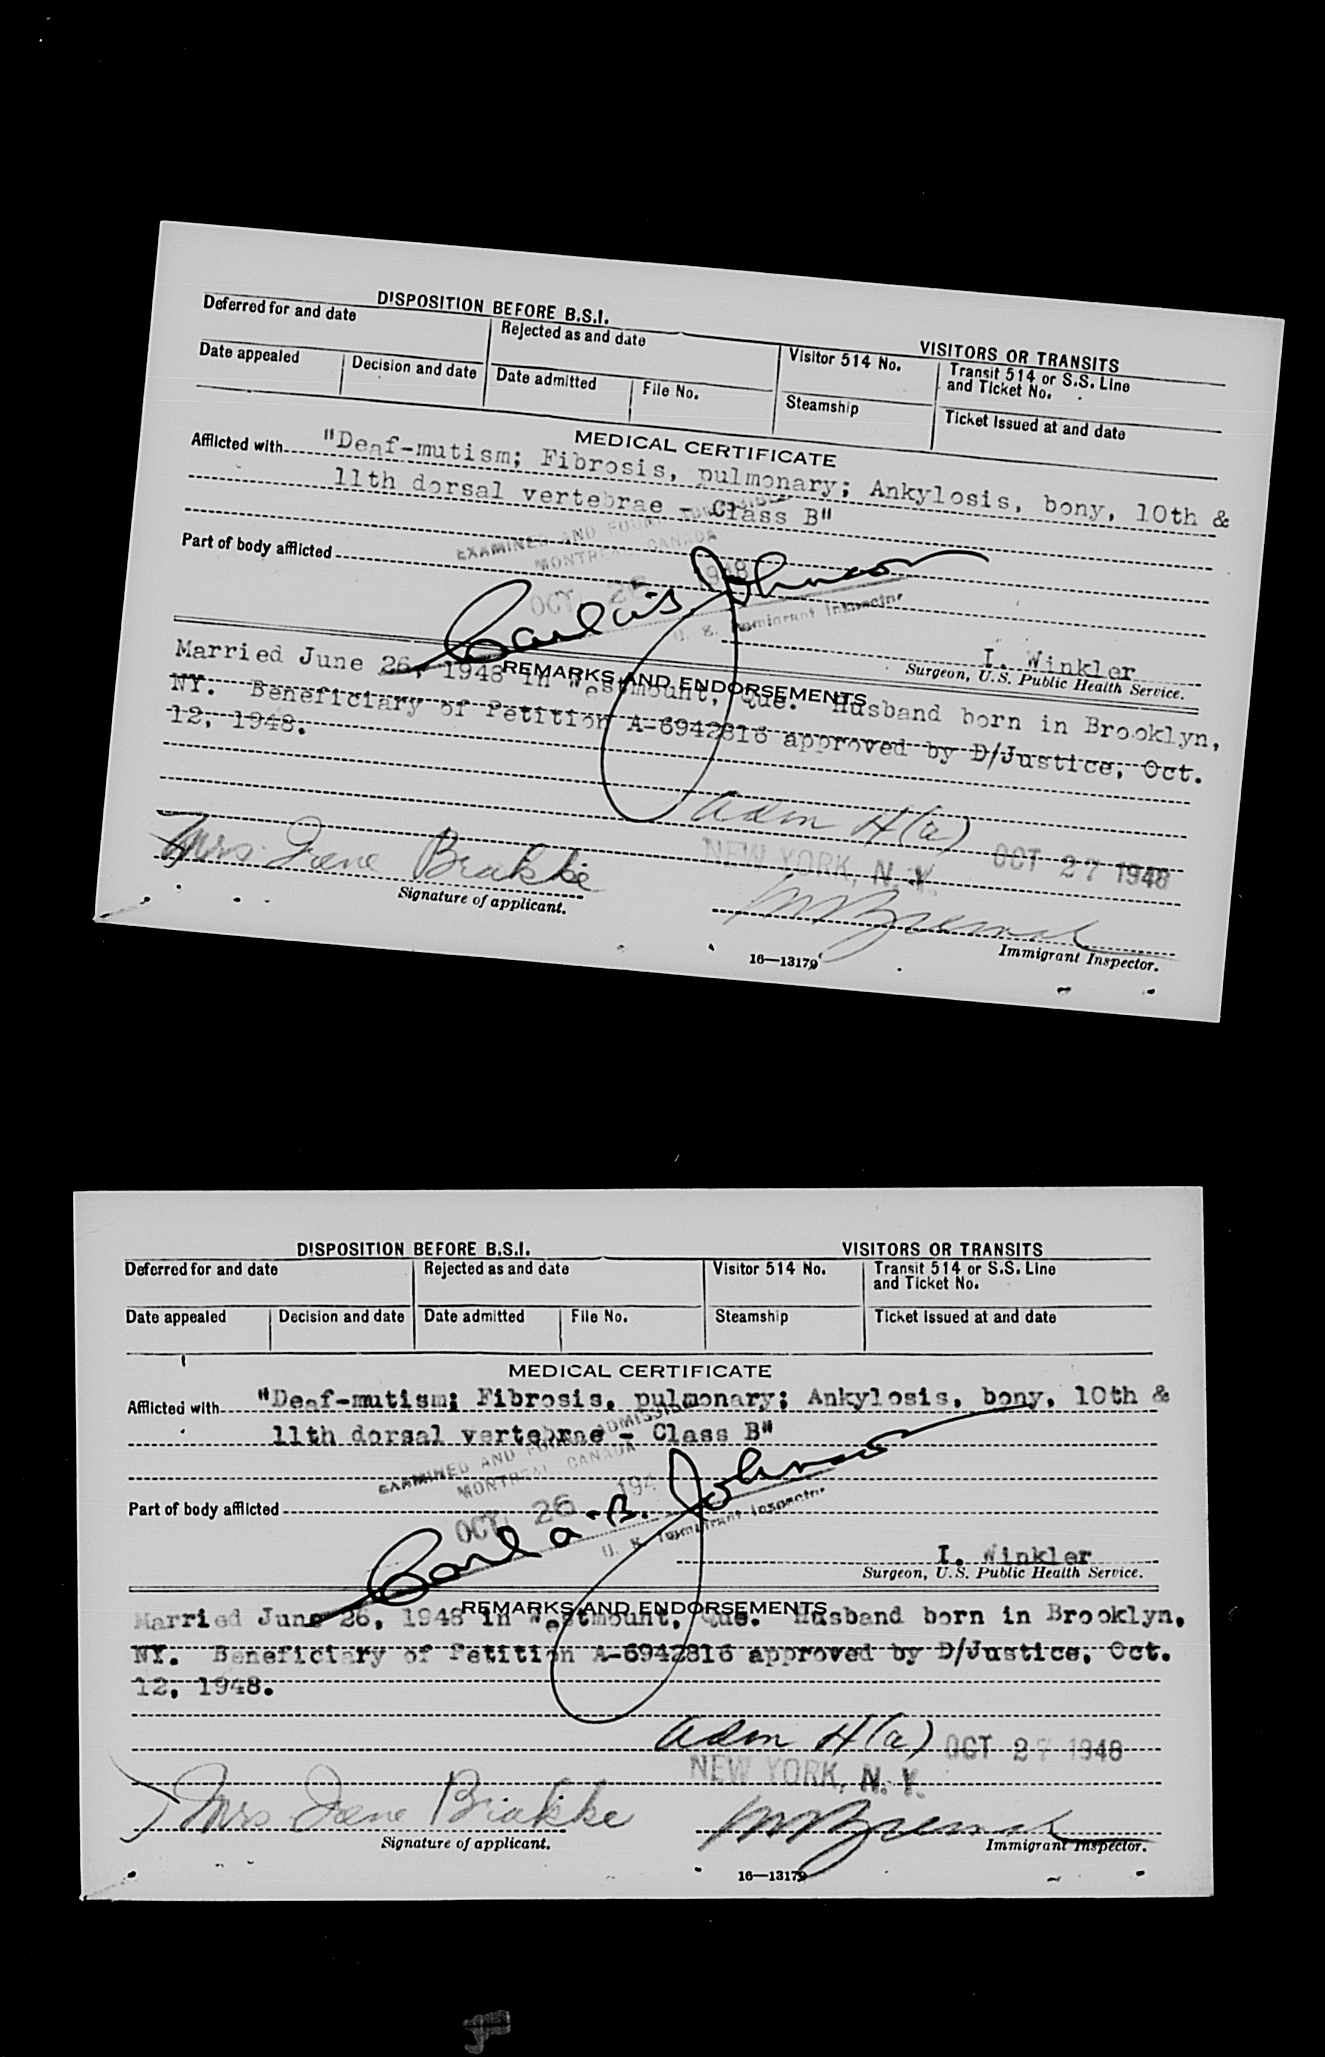 DISPOSITION BEFORE B.S.I.
VISITORS OR TRANSITS
Deferred for and date
Rejected as and date
Visitor 514 No.
Transit 514 or S.S. Line
and Ticket No.
Date appealed
Decision and date
Date admitted
File No.
Steamship
Ticket issued at and date
MEDICAL CERTIFICATE
Afflicted with "Deaf-mutism; Fibrosis, pulmonary; Ankylosis, bony, 10th &
11th dorsal vertebrae - Class B"
EXAMINED AND FOUND
MONTREAL CANADA
Part of body afflicted
OCT 26 1948
Johnson
U. S. Immigrant Inspector
I. Winkler
Surgeon, U.S. Public Health Service.
REMARKS AND ENDORSEMENTS
Married June 26, 1948 in Westmount, Que. Husband born in Brooklyn,
NY. Beneficiary of Petition A-6942816 approved by D/Justice, Oct.
12, 1948.
Adm 4(a) OCT 27 1948
NEW YORK, N. Y.
Mrs Brakke
Signature of applicant.
Immigrant Inspector.
16—13179
DISPOSITION BEFORE B.S.I.
VISITORS OR TRANSITS
Deferred for and date
Rejected as and date
Visitor 514 No.
Transit 514 or S.S. Line
and Ticket No.
Date appealed
Decision and date
Date admitted
File No.
Steamship
Ticket issued at and date
MEDICAL CERTIFICATE
Afflicted with "Deaf-mutism; Fibrosis, pulmonary; Ankylosis, bony, 10th &
11th dorsal vertebrae - Class B"
EXAMINED AND FOUND ADMISS
MONTREAL CANADA
Part of body afflicted
OCT 26 194
Johnson
U. S. Immigrant Inspector
I. Winkler
Surgeon, U.S. Public Health Service.
REMARKS AND ENDORSEMENTS
Married June 26, 1948 in Westmount, Que. Husband born in Brooklyn,
NY. Beneficiary of Petition A-6942816 approved by D/Justice, Oct.
12, 1948.
Adm 4(a) OCT 27 1948
NEW YORK, N. Y.
Mrs Brakke
Signature of applicant.
Immigrant Inspector.
16—13179